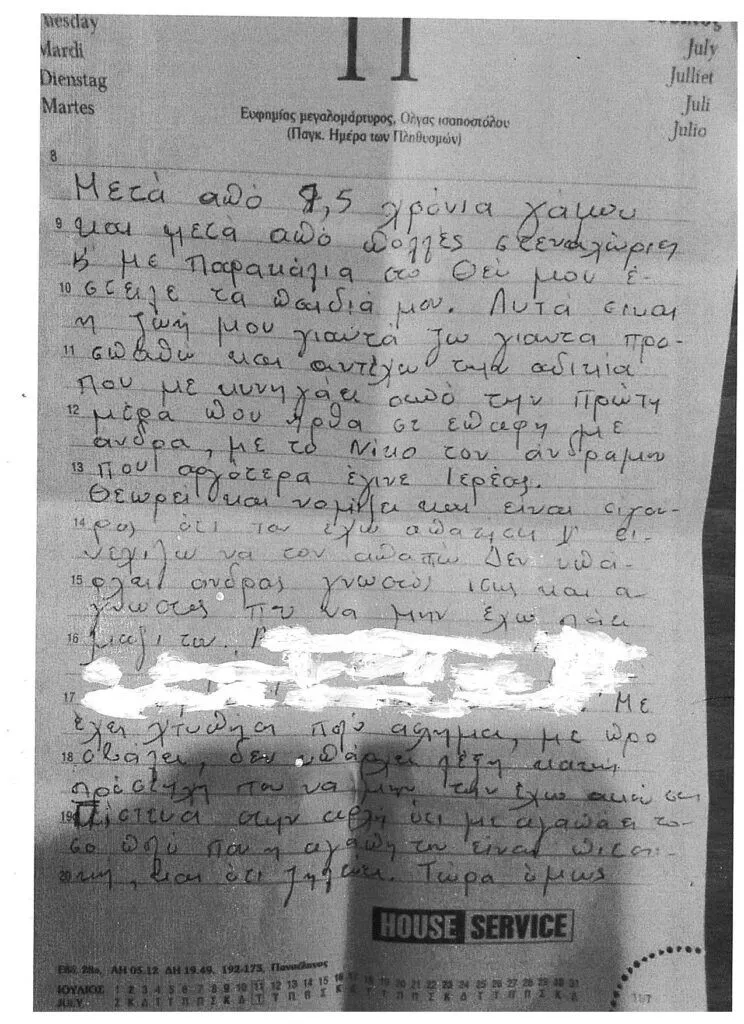 Tuesday
Mardi
Dienstag
Martes
11
July
Julliet
Juli
Julio
Ευφημίας μεγαλομάρτυρος, Όλγας ισαποστόλου
(Παγκ. Ημέρα των Πληθυσμών)
8
Μετά από 7,5 χρόνια γάμου
9 και μετά από πολλές στεναχώριες
κ' με παρακάλια στο Θεό μου έ-
10 στειλε τα παιδιά μου. Αυτά είναι
η ζωή μου γιαυτά ζω γιαυτα προ-
11 σπαθώ και αντέχω την αδικία
που με κυνηγάει από την πρώτη
12 μέρα που ήρθα σε επαφή με
άνδρα, με το Νίκο τον άνδραμου
13 που αργότερα έγινε Ιερέας.
Θεωρεί και νομίζει και είναι σίγου-
14 ρος ότι τον έχω απατήσει κ' συ-
νεχίζω να τον απατώ Δεν υπά-
15 ρχει άνδρας γνωστός και α-
γνωστος που να μην έχω πάει
16 μαζί του.
17 Με
έχει χτυπήσει πολύ άσχημα, με προ
18 σβάλει, δεν υπάρχει λέξη κακή
πρόστυχη που να μην την έχω ακούσει
19 Πίστευα στην αρχή ότι με αγαπάει το-
σο πολύ που η αγάπη του είναι
20 και ότι ζηλεύει. Τώρα όμως
HOUSE SERVICE
Εβδ. 28α, ΑΗ 05.12 ΔΗ 19.49, 192-173, Πανσέληνος
ΙΟΥΛΙΟΣ 1 2 3 4 5 6 7 8 9 10 11 12 13 14 15 16 17 18 19 20 21 22 23 24 25 26 27 28 29 30 31
JULY Σ Κ Δ Τ Τ Π Π Σ Κ Δ Τ Τ Π Π Σ Κ